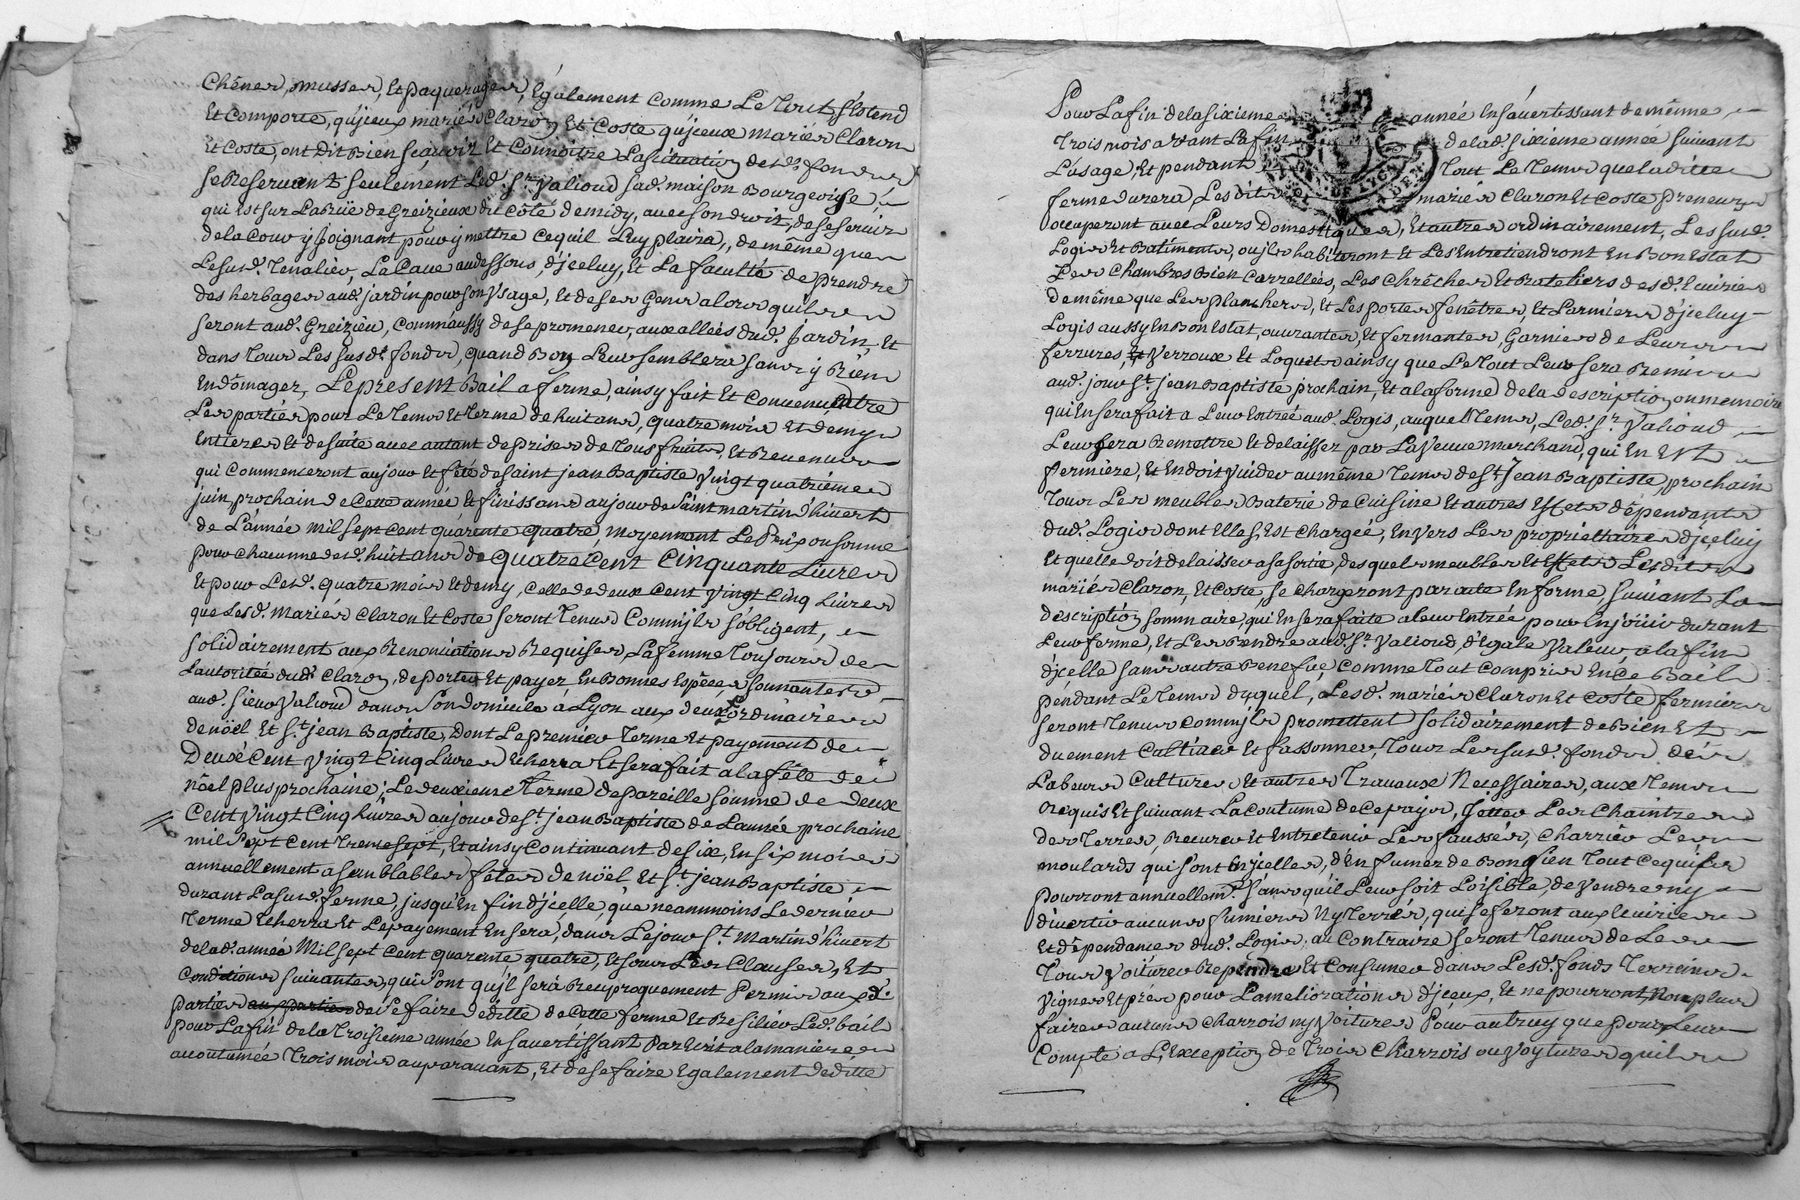 chêner, musser, Et paquerager, Egalement comme Le Tout s'Estend
Et comporte, qu'jceux mariés Claron Et Coste qu'jceux mariés Claron
Et Coste, ont Dit Bien Sçavoir Et Connoître La situation desd. fonds
se Reservant seulement Led. Sr. Valioud sad. maison Bourgeoise,
qui Est sur La Ruë de Greizieux du côté de midy, avec son droit, de se servir
de la Cour y joignant pour y mettre ce quil Luy plaira, de même que
Le susd. Tenalier, La Cave au dessous, d'jceluy, Et La faculté de prendre
des herbages aud. jardin pour son Usage, Et de ses Gens alors quils
seront aud. Greizieu, comm'aussy de se promener, aux allées dud. Jardin, Et
dans Tous Les susdt. fonds, quand Bon Leur semblera sans y Rien
Endômager, Le present Bail a ferme, ainsy fait Et Convenu Entre
Les parties pour Le Tems Et Terme de huit ans, quatre mois Et demy
Entiers Et de suite avec autant de prises de Tous fruits, Et Revenus
qui Commenceront au jour Et fête de saint jean Baptiste Vingt quatrieme
juin prochain de Cette année Et finissans au jour de Saint martin d'hivert
de L'année mil sept Cent quarante quatre, moyennant Le Prix ou somme
pour chacunne desd. huit ans de quatre Cent Cinquante Livres
Et pour Lesd. quatre mois Et demy, Celle de deux Cent Vingt Cinq Livres
que Lesd. mariés Claron Et Coste seront Tenus Comm'jls s'obligent,
solidairement aux Renonciations Requises, La femme Toujours de
L'autorité dud. Claron, de porter Et payer En Bonnes Espêces sonnantes
aud. sieur Valioud dans son domicile à Lyon aux deux ordinaires
de noël Et St. jean Baptiste, Dont Le premier Terme Et payement de
Deux Cent Vingt Cinq Livres Echerra Et sera fait a la fête de
nôel plus prochaine; Le deuxieme Terme de pareille somme de deux
Cent Vingt Cinq Livres au jour de St. jean Baptiste de L'année prochaine
mil Sept Cent Trente sept, Et ainsy Continuant de six, En six mois
annuellement a semblables fêtes de nöel Et St. jean Baptiste
durant La susd. ferme, jusqu'En fin d'jcelle, que neanmoins Le dernier
Terme Echerra Et Le payement En sera, dans Le jour St. Martin d'hivert
de lad. année Mil sept Cent quarante quatre, Et sous Les Clauses, Et
Conditions suivantes, qui sont qu'jl serà Reciproquement Permis aux d.
parties aux parties de se faire deditte de Cette ferme Et Resilier Led. bail
pour La fin de la Troisieme année En s'avertissant Par Ecrit a la maniere
accoutumée Trois mois auparavant, Et de se faire Egalement deditte
Pour La fin de la sixieme année En s'avertissant de même
Trois mois avant La fin de lad. sixieme année suivant
L'usage, Et pendant Tout Le Tems que laditte
ferme durera Lesdits mariés Claron Et Coste preneurs
occuperont avec Leurs Domestiques, Et autres ordinairement, Les susd.
Logis Et Batiments, ou jls habiteront Et Les Entretiendront En Bon Estat
Les Chambres Bien Carrellées, Les Chrêches Et Rateliers desd. Ecuries
de même que Les planchers, Et Les portes fenêtres, Et Larmiers d'jceluy
Logis aussy En Bon Estat, ouvrantes, Et fermantes, Garnies de Leurs
ferrures, Et Verroux Et Loquets ainsy que Le Tout Leur sera Remis
aud. jour St. jean Baptiste prochain, Et a la forme de la description ou memoire
qui En sera fait a Leur Entrée aud. Logis, auquel Tems, Led. Sr. Valioud
Leur fera Remettre Et delaisser par La Veuve marchand, qui En Est
fermiere, Et En doit Vuider au même Tems de St. Jean Baptiste prochain
Tous Les meubles Baterie de Cuisine Et autres Effets dépendants
dud. Logis dont Elle s'Est Chargée, Envers Les proprietaires d'jceluy
Et quelle doit delaisser a sa sortie, des quels meubles Et Effets Lesdits
mariés Claron, Et Coste, se Chargeront par acte En forme, suivant La
description sommaire, qui En sera faite a leur Entrée pour En joüir durant
Leur ferme, Et Les Rendre aud. Sr. Valioud, d'Egale Valeur a la fin
d'jcelle sans autre Benefice, Comme Tout Compris En Ce Bail
pendant Le Tems duquel, Lesd. mariés Claron Et Coste fermiers
seront Tenus Comm'jls promettent solidairement de Bien Et
duement Cultiver Et fassonner, Tous Les susd. fonds de
Labeurs Cultures Et autres Travaux Necessaires, aux Tems
Requis Et suivant La Coutume de Ce pays, Jetter Les Chaintres
des Terres, Recurer Et Entretenir Les faussés, Charrier Les
moulards qui sont En jcelles, d'En fumer de Bon fien Tout Ce qu'jls
pourront annuellemt. sans qu'il Leur soit Loisible, de Vendre ny
divertir aucuns fumiers Ny Terriés, qui se feront aux Ecuries
Et dépendances dud. Logis, au Contraire seront Tenus de Les
Tous Voiturer Rependre Et Consumer dans Lesd. fonds Terreins
Vignes Et prés pour L'ameliorations d'jceux, Et ne pourront Non plus
faire aucuns Charrois ny Voitures Pour autruy que pour Leur
Compte a L'Exception de Trois Charrois ou Voytures quils